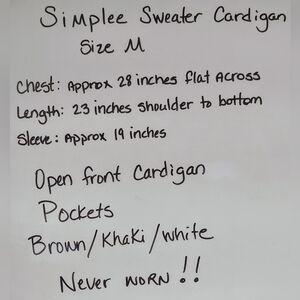 Simplee Sweater Cardigan
Size M
Chest: Approx 28 inches flat Across
Length: 23 inches shoulder to bottom
Sleeve: Approx 19 inches
Open front Cardigan
Pockets
Brown/Khaki/white
Never worn!!